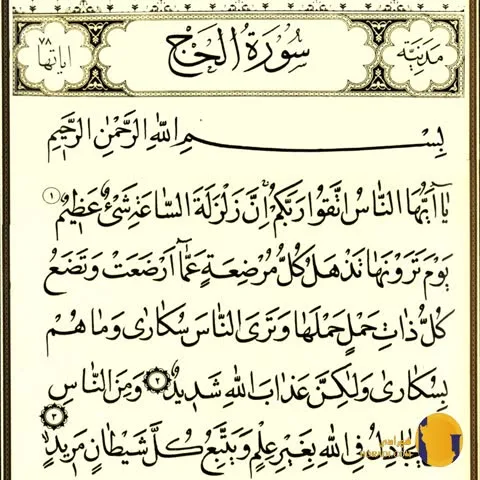 مَدَنِيَّة سُورَةُ الحَجِّ آيَاتُهَا ٧٨
بِسْمِ اللّٰهِ الرَّحْمٰنِ الرَّحِيمِ
يَا أَيُّهَا النَّاسُ اتَّقُوا رَبَّكُمْ إِنَّ زَلْزَلَةَ السَّاعَةِ شَيْءٌ عَظِيمٌ ١
يَوْمَ تَرَوْنَهَا تَذْهَلُ كُلُّ مُرْضِعَةٍ عَمَّا أَرْضَعَتْ وَتَضَعُ
كُلُّ ذَاتِ حَمْلٍ حَمْلَهَا وَتَرَى النَّاسَ سُكَارَى وَمَا هُمْ
بِسُكَارَى وَلٰكِنَّ عَذَابَ اللّٰهِ شَدِيدٌ ٢ وَمِنَ النَّاسِ
يُجَادِلُ فِي اللّٰهِ بِغَيْرِ عِلْمٍ وَيَتَّبِعُ كُلَّ شَيْطَانٍ مَرِيدٍ ٣